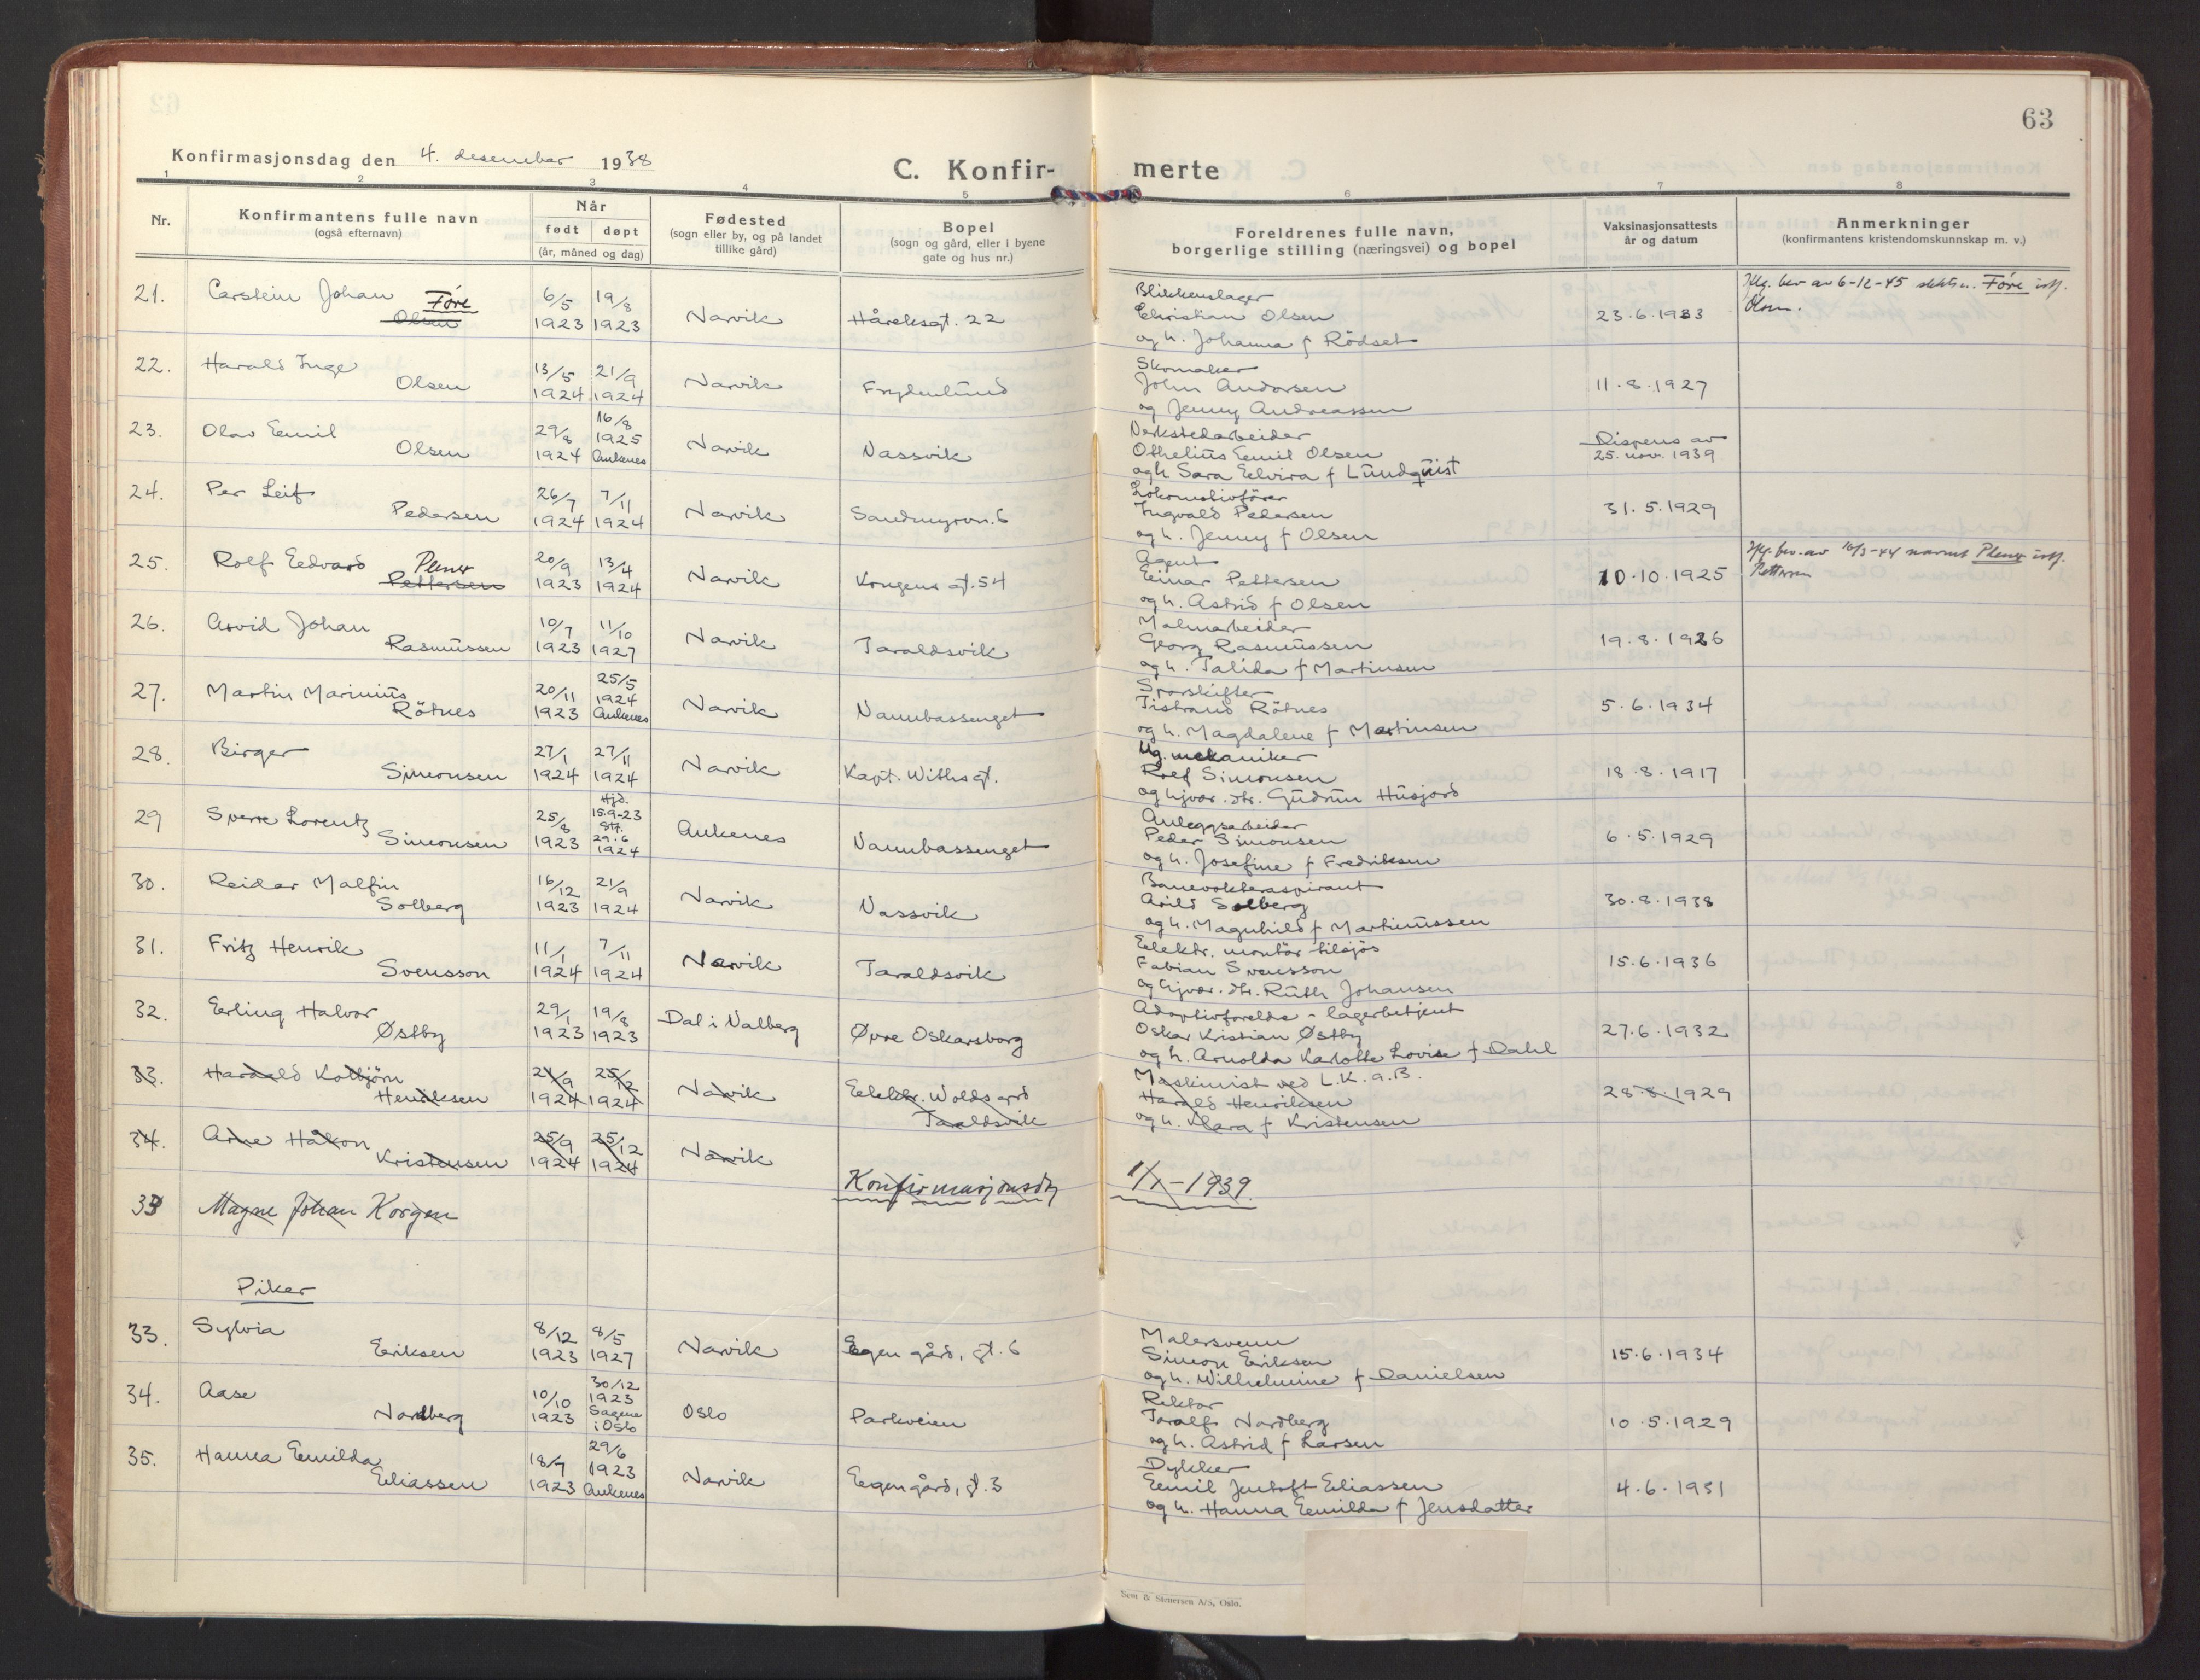 63
Konfirmasjonsdag den 4. desember 1938
C. Konfir-
merte
1 2 3 4 5 6 7 8
Nr.
Konfirmantens fulle navn
(også efternavn)
Når
født døpt
(år, måned og dag)
Fødested
(sogn eller by, og på landet
tillike gård)
Bopel
(sogn og gård, eller i byene
gate og hus nr.)
Foreldrenes fulle navn,
borgerlige stilling (næringsvei) og bopel
Vaksinasjonsattests
år og datum
Anmerkninger
(konfirmantens kristendomskunnskap m. v.)
21. Carstein Johan Føre
Olsen
6/5 1923
19/8 1923
Narvik
Håreksgt. 22
Blikkenslager
Christian Olsen
og h. Johanna f Rödset
23.6.1933
bev av 6-12-45 slektsn. Føre istf.
Olsen.
22. Harald Inge
Olsen
13/5 1924
21/9 1924
Narvik
Frydenlund
Skomaker
John Andorsen
og Jenny Andreassen
11.8.1927
23. Olav Emil
Olsen
29/8 1924
16/8 1925 Ankenes
Narvik
Vassvik
Verkstedarbeider
Othelius Emil Olsen
og h Sara Elvira f Lundquist
Dispens av
25. nov. 1939
24. Per Leif
Pedersen
26/7 1924
7/11 1924
Narvik
Sandmyrvn. 6
Lokomotivfører
Ingvald Pedersen
og h. Jenny f Olsen
31.5.1929
25. Rolf Edvard Plener
Pettersen
20/9 1923
13/4 1924
Narvik
Kongens gt. 54
Agent
Einar Pettersen
og h. Astrid f Olsen
10.10.1925
bev. av 16/3-44 navnet Plener istf.
Pettersen
26. Arvid Johan
Rasmussen
10/7 1923
11/10 1927
Narvik
Taraldsvik
Malmarbeider
Georg Rasmussen
og h. Talida f Martinsen
19.8.1926
27. Martin Marinius
Rötnes
20/11 1923
25/5 1924 Ankenes
Narvik
Vannbassenget
Sporskifter
Tistrand Rötnes
og h. Magdalene f Martinsen
5.6.1934
28. Birger
Simonsen
27/1 1924
27/11 1924
Narvik
Kapt. Withsgt.
Ug. mekaniker
Rolf Simonsen
og hjvær. dtr. Gudrun Husjord
18.8.1917
29 Sverre Lorentz
Simonsen
25/8 1923
Hjd. 15.9-23 Stf. 29.6 1924
Ankenes
Vannbassenget
Anleggsarbeider
Peder Simonsen
og h. Josefine f Fredriksen
6.5.1929
30. Reidar Malfin
Solberg
16/12 1923
21/9 1924
Narvik
Vassvik
Banevokteraspirant
Arild Solberg
og h. Magnhild f Martinussen
30.8.1938
31. Fritz Henrik
Svensson
11/1 1924
7/11 1924
Narvik
Taraldsvik
Elektr. montör tilsjøs
Fabian Svensson
og hjvær. dtr. Ruth Johansen
15.6.1936
32. Erling Halvor
Østby
29/1 1923
19/8 1923
Dal i Valberg
Øvre Oskarsborg
Adoptivforeldre - lagerbetjent
Oskar Kristian Østby
og h. Arnolda Karlotte Lovise f Dahl
27.6.1932
33. Harald Kolbjörn
Henriksen
21/9 1924
25/12 1924
Narvik
Elektr. Woldsgård
Taraldsvik
Maskinist ved L.K.a.B.
Harald Henriksen
og h. Klara f Kristensen
28.8.1929
34. Arne Håkon
Kristensen
25/9 1924
25/12 1924
Narvik
Konfirmasjonsdg
1/X-1939.
33 Magne Johan Korgen
Piker
33. Sylvia
Eriksen
8/12 1923
8/5 1927
Narvik
Egen gård, gt. 6
Malersvenn
Simon Eriksen
og h. Wilhelmine f Danielsen
15.6.1934
34. Aase
Nordberg
10/10 1923
30/12 1923 Sagene i Oslo
Oslo
Parkveien
Rektor
Toralf Nordberg
og h. Astrid f Larsen
10.5.1929
35. Hanna Emilda
Eliassen
18/7 1923
29/6 1923 Ankenes
Narvik
Egen gård, gt. 3
Dykker
Emil Jentoft Eliassen
og h. Hanna Emilda f Jensdatter
4.6.1931
Sem & Stenersen A/S, Oslo.